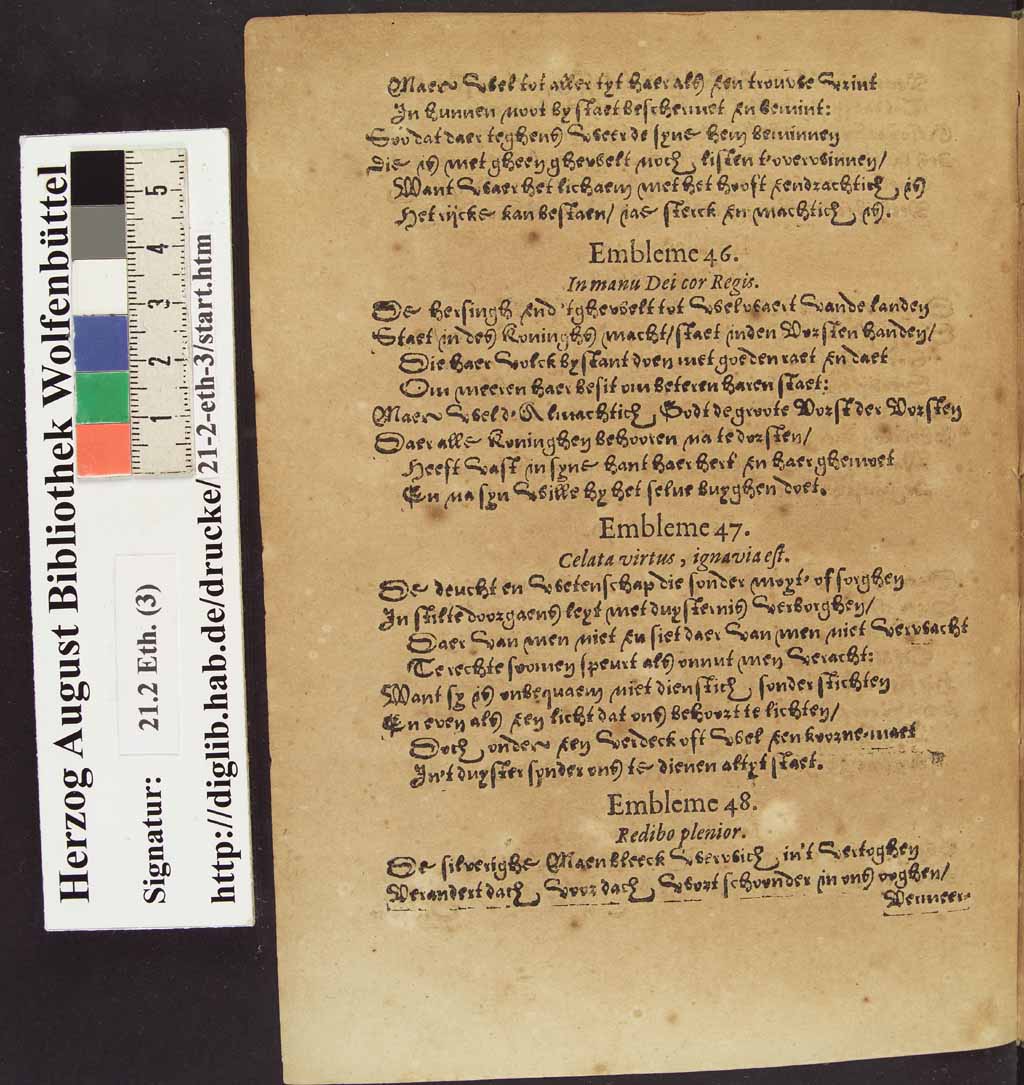 Herzog August Bibliothek Wolfenbüttel
Signatur: 21.2 Eth. (3)
http://diglib.hab.de/drucke/21-2-eth-3/start.htm
1 2 3 4 5
Maer wel tot aller tyt haer als een trouwe vrint
In hunnen noot by staet beschermet en bemint:
Soo dat daer teghens weer de syne hem beminnen
Die is met gheen ghewelt noch listen t'overwinnen/
Want waer het lichaem met het hooft eendrachtich is
Het rijcke kan bestaen/ jae sterck en machtich is.
Embleme 46.
In manu Dei cor Regis.
De heersingh end 'tghewelt tot welvaert vande landen
Staet in des Koninghs macht/ staet inden Vorsten handen/
Die haer volck bystant doen met goeden raet en daet
Om meeren haer besit om beteren haren staet:
Maer Almachtich Godt de groote Vorst der Vorsten
Daer alle Koninghen behooren na te dorsten/
Heeft vast in syne hant haer hert en haer ghemoet
En na syn wille hy het selve buyghen doet.
Embleme 47.
Celata virtus, ignavia est.
De deucht en wetenschap die sonder moyt' of sorghen
In stilte doorgaens leyt met duysternis verborghen/
Daer van men niet en siet daer van men niet verwacht
Te rechte soomen speurt als onnut men veracht:
Want sy is onbequaem niet dienstich sonder stichten
En even als een licht dat ons behoort te lichten/
Doch onder een verdeck oft wel een koorne-maet
In't duyster synder ons te dienen altyt staet.
Embleme 48.
Redibo plenior.
De silverighe Maen bleeck verwich in't vertoghen
Verandert dach voor dach wort schoonder in ons ooghen/
Vermeer-